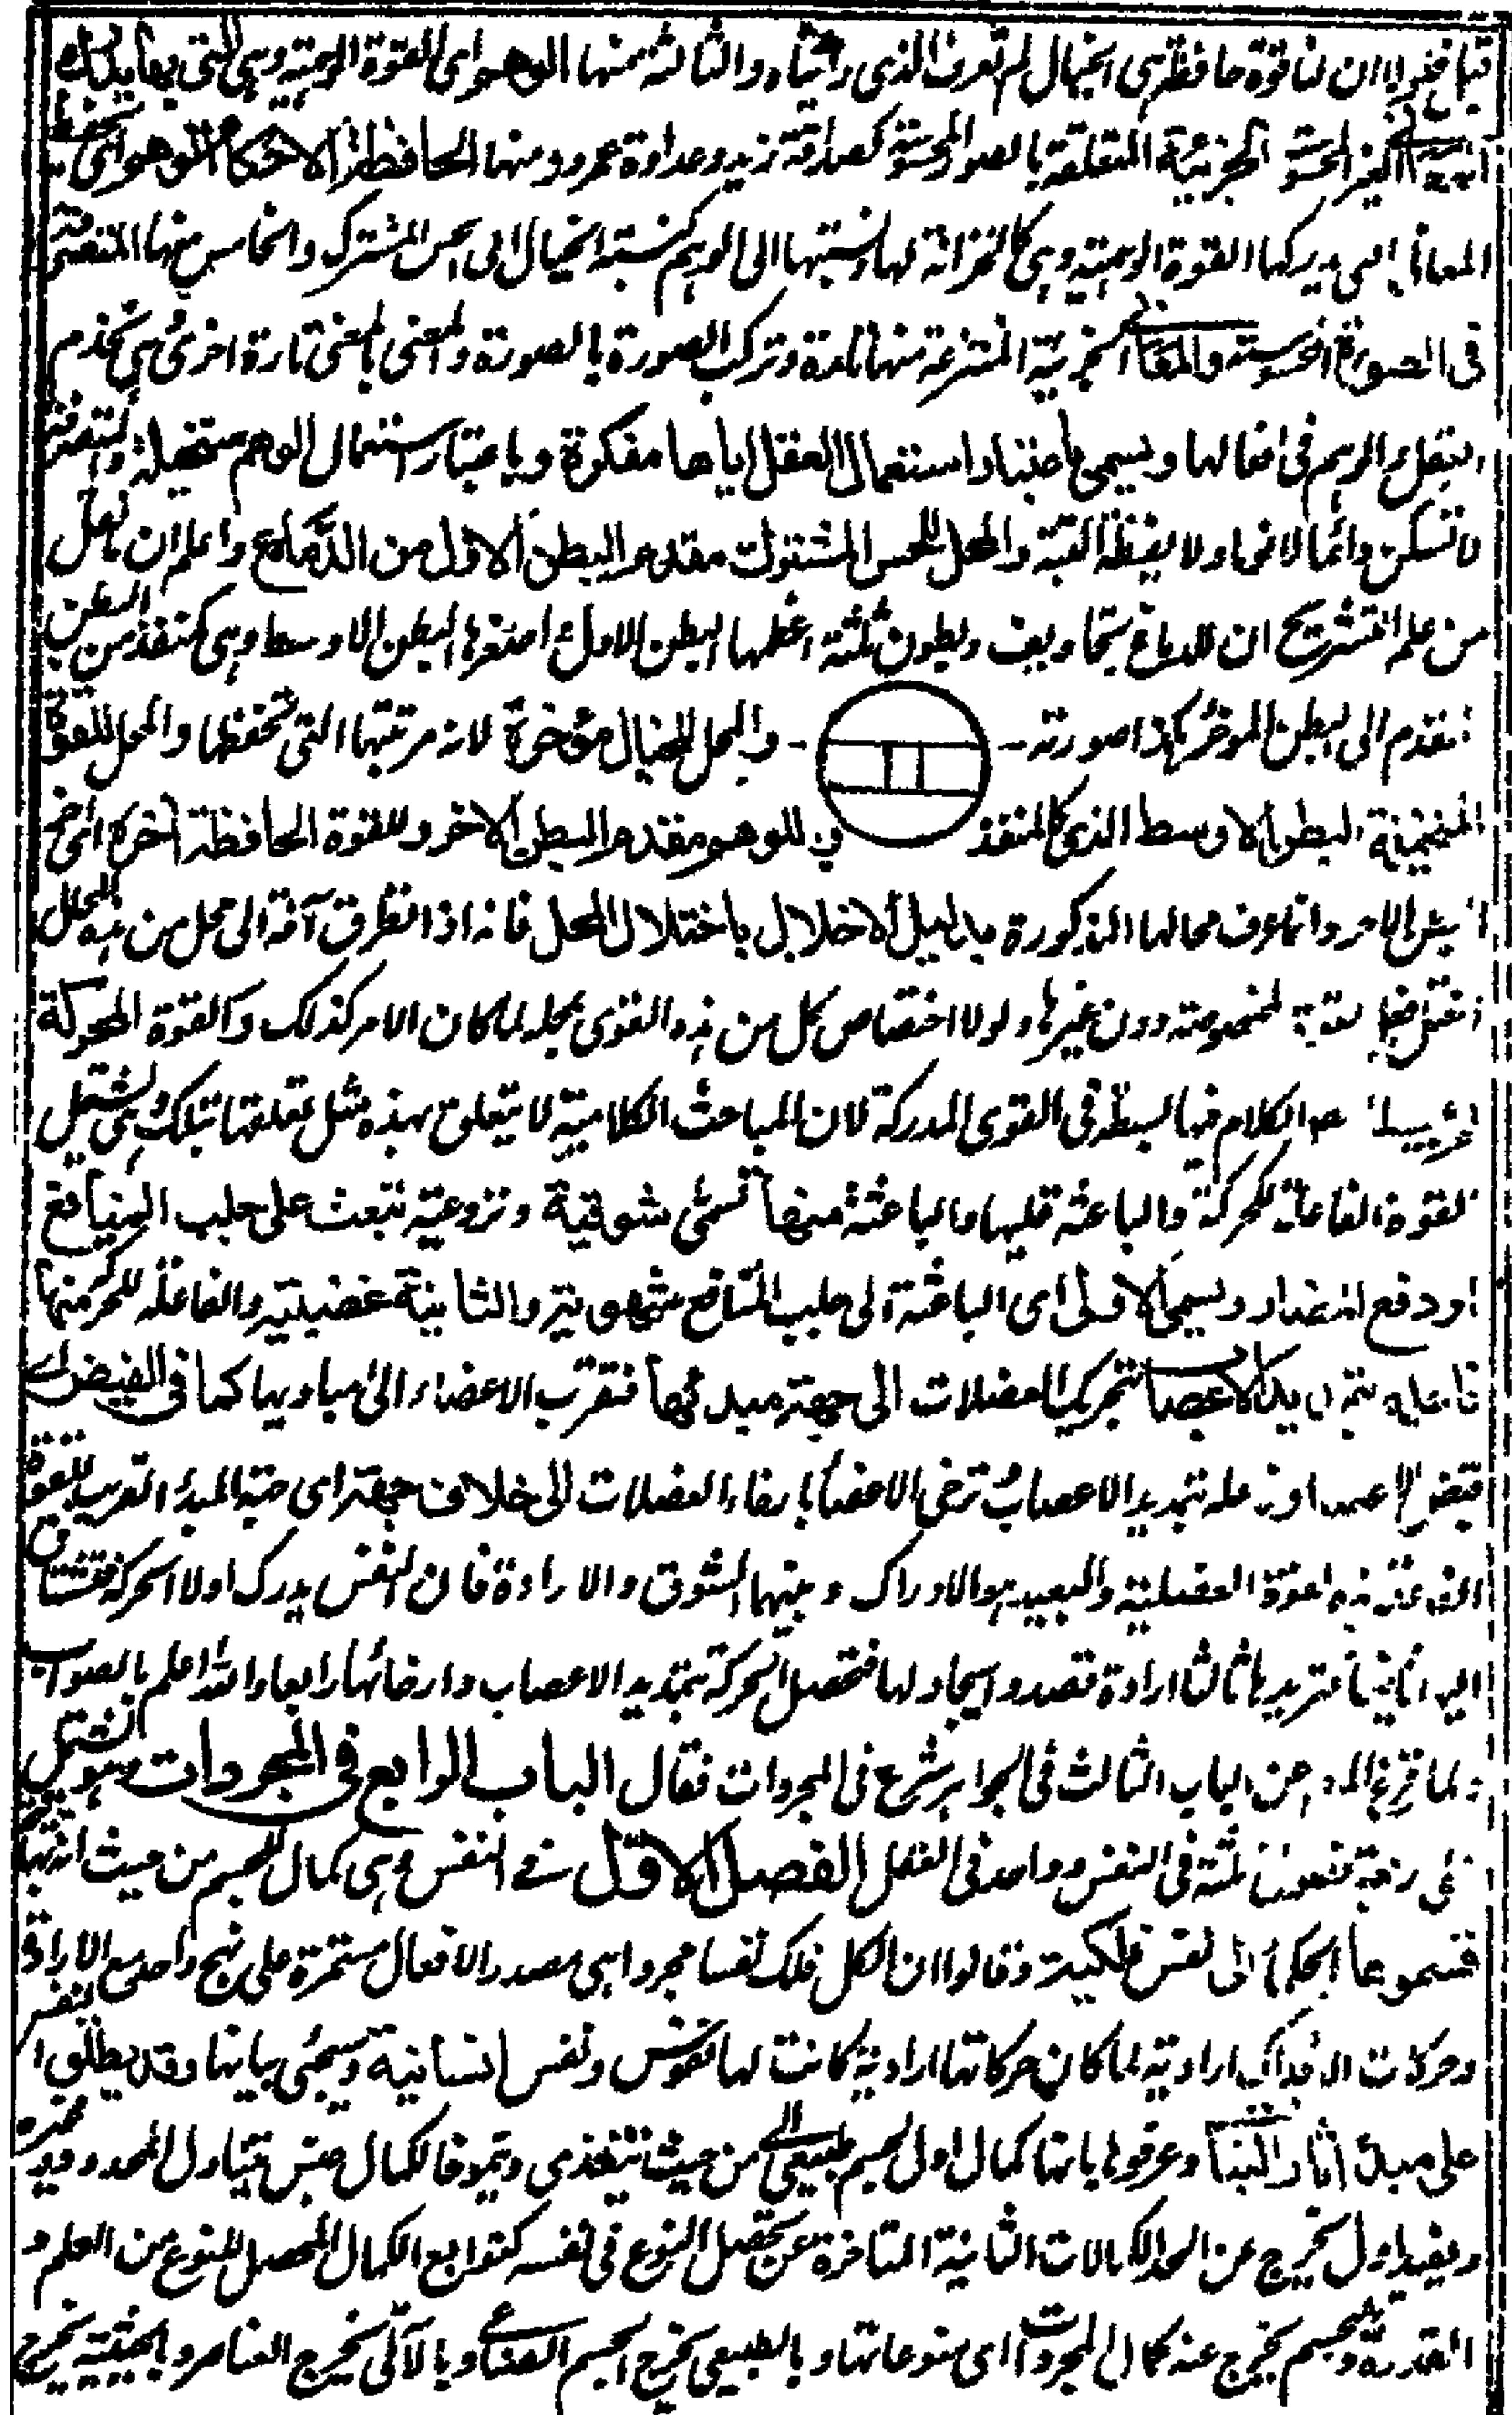 فلولا ان لنا قوة حافظة هى الخيال لم نعرف الذى رأيناه والثالثة منها الوهم اى القوة الوهمية وهى التى بها يدرك
الغير المحسوسة الجزئية المتعلقة بالصور المحسوسة كصداقة زيد وعداوة عمرو ومنها الحافظة لاحكام الوهم اى تحفظ
المعانى التى يدركها القوة الوهمية وهى كالخزانة لها ونسبتها الى الوهم كنسبة الخيال الى الحس المشترك والخامس منها المتصرفة
فى الصورة المحسوسة والمعانى الجزئية المنتزعة منها تارة وتركب الصورة بالصورة والمعنى بالمعنى تارة اخرى هى تخدم
العقل والوهم فى افعالها ويسمى باعتبار استعمال العقل اياها مفكرة وباعتبار استعمال الوهم متخيلة والمتصرفة
لا تسكن دائما لا نوما ولا يقظة البتة والمحل للحس المشترك مقدم البطن الاول من الدماغ واعلم ان
من علم التشريح ان للدماغ تجاويف وبطون ثلثة اعظمها البطن الاول واصغرها البطن الاوسط وهى كمنفذ من البطن
المقدم الى البطن المؤخر هكذا صورته - - والمحل للخيال مؤخرة لانه مرتبتها التى تحفظها والمحل للقوة
البطن الاوسط الذى كالمنفذ وللوهم مقدم البطن الاخر وللقوة الحافظة اخره
وانما عرف محالها المذكورة بدليل الاخلال باختلال المحل فانه اذا تطرق آفة الى محل من هذه المحال
دون غيرها ولولا اختصاص كل من هذه القوى بمحله لما كان الامر كذلك والقوة المحركة
الكلام فيها بسطه فى القوى المدركة لان المباحث الكلامية لا يتعلق بهذه مثل تعلقها بتلك وهى تشتمل
القوة الفاعلة للحركة والباعثة عليها والباعثة منها تسمى شوقية ونزوعية تبعث على جلب المنافع
او دفع المضار ويسمى الاولى اى الباعثة الى جلب المنافع شهوية والثانية غضبية والفاعلة للحركة منها
بتمديد الاعصاب تحريك العضلات الى جهة مبدئها فتقرب الاعضاء الى مباديها كما فى القبض
بتمديد الاعصاب ترخى الاعضاء بارخاء العضلات الى خلاف جهة اى جهة المبدأ القريب للقوة
هذه القوة العضلية والبعيد هو الادراك وبينهما الشوق والارادة فان النفس يدرك اولا الحركة فتشتاق
اليه ثانيا فتريدها ثالثا ارادة قصد وايجاد لها فتحصل الحركة بتمديد الاعصاب وارخائها رابعا والله اعلم بالصواب
ولما فرغ المص عن الباب الثالث فى الجواهر شرع فى المجردات فقال الباب الرابع فى المجردات وهو يشتمل
على اربعة فصول ثلثة فى النفس وواحد فى العقل الفصل الاول فى النفس وهى كمال للجسم من حيث
قسموها الحكماء الى نفس فلكية وقالوا ان لكل فلك نفسا مجردا هى مصدر الافعال مستمرة على نهج واحد مع الارادة
وحركات الافلاك ارادية لما كان حركاتها ارادية كانت لها نفوس ونفس انسانية وسيجئ بيانها وقد يطلق النفس
على مبدأ آثار النبات وعرفوها بانها كمال اول لجسم طبيعى آلى من حيث تتغذى وتنمو فالكمال جنس يتناول المحدود وغيره
وبقيد اول يخرج عن الحد الكمالات الثانية المتاخرة عن تحصل النوع فى نفسه كتوابع الكمال المحصل للنوع من العلم و
القدرة وبجسم يخرج عنه كمال المجردات اى منوعاتها وبالطبيعى يخرج الجسم الصناعى وبالآلى يخرج العناصر وبالحيثية يخرج